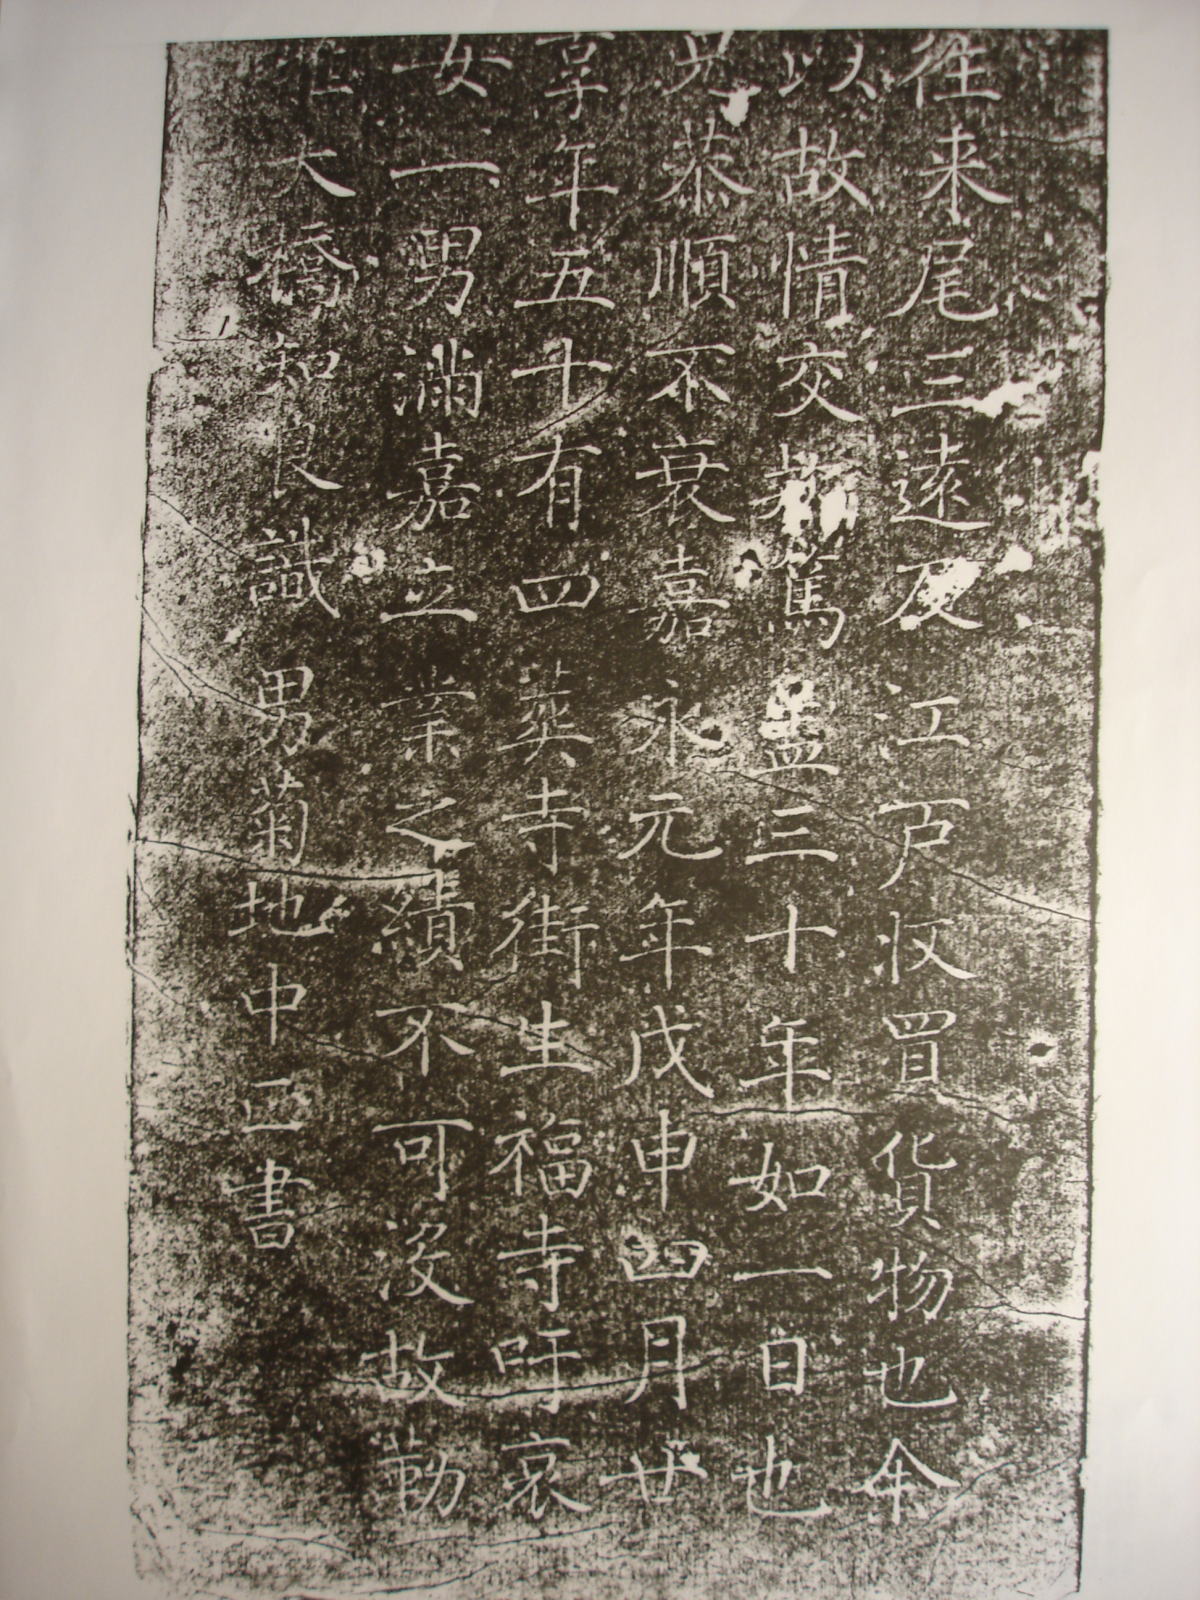 往来尾三遠及江戸収買貨物也余
以故情交篤盖三十年如一日也
恭順不衰嘉永元年戊申四月廿
享年五十有四葬寺街生福寺吁哀
女一男満嘉立業之績不可没故勒
大橋知良識男菊地中二書